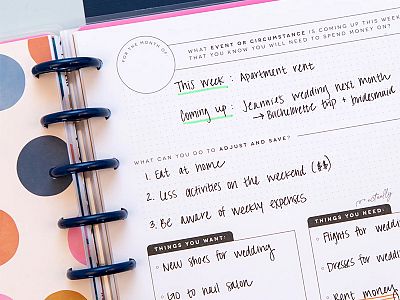 FOR THE MONTH OF
WHAT EVENT OR CIRCUMSTANCE IS COMING UP THIS WEEK
THAT YOU KNOW YOU WILL NEED TO SPEND MONEY ON?
This week: Apartment rent
Coming up: Jeannie's wedding next month
→ Bachelorette trip + bridesmaid
WHAT CAN YOU DO TO ADJUST AND SAVE?
1. Eat at home
2. Less activities on the weekend ($$)
3. Be aware of weekly expenses
actually
THINGS YOU WANT:
THINGS YOU NEED:
New shoes for wedding
Flights for
Go to nail salon
Dresses for
Rent money